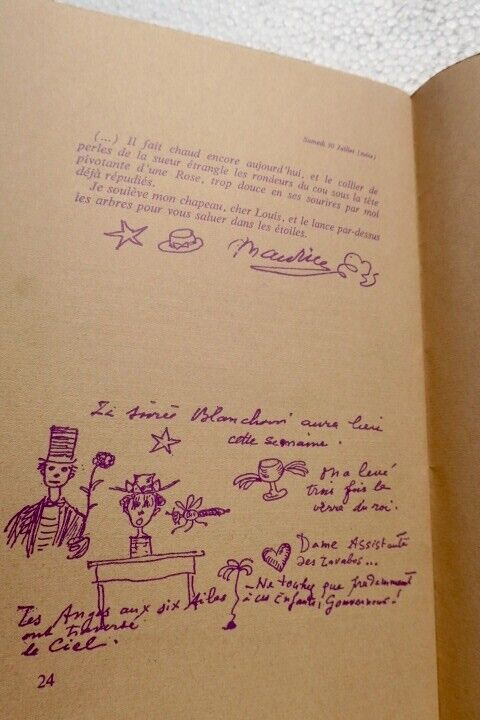 Samedi 30 Juillet (suite)
(...) Il fait chaud encore aujourd'hui, et le collier de
perles de la sueur étrangle les rondeurs du cou sous la tête
pivotante d'une Rose, trop douce en ses sourires par moi
déjà répudiés.
Je soulève mon chapeau, cher Louis, et le lance par-dessus
les arbres pour vous saluer dans les étoiles.
Maurice
La soirée Blanchard aura lieu
cette semaine.
on a levé
trois fois le
verre du roi.
Dame Assistante
des Lavabos...
- Ne touchez que prudemment
à ces Enfants, Gouverneur !
Les Anges aux six ailes
ont traversé
le Ciel.
24